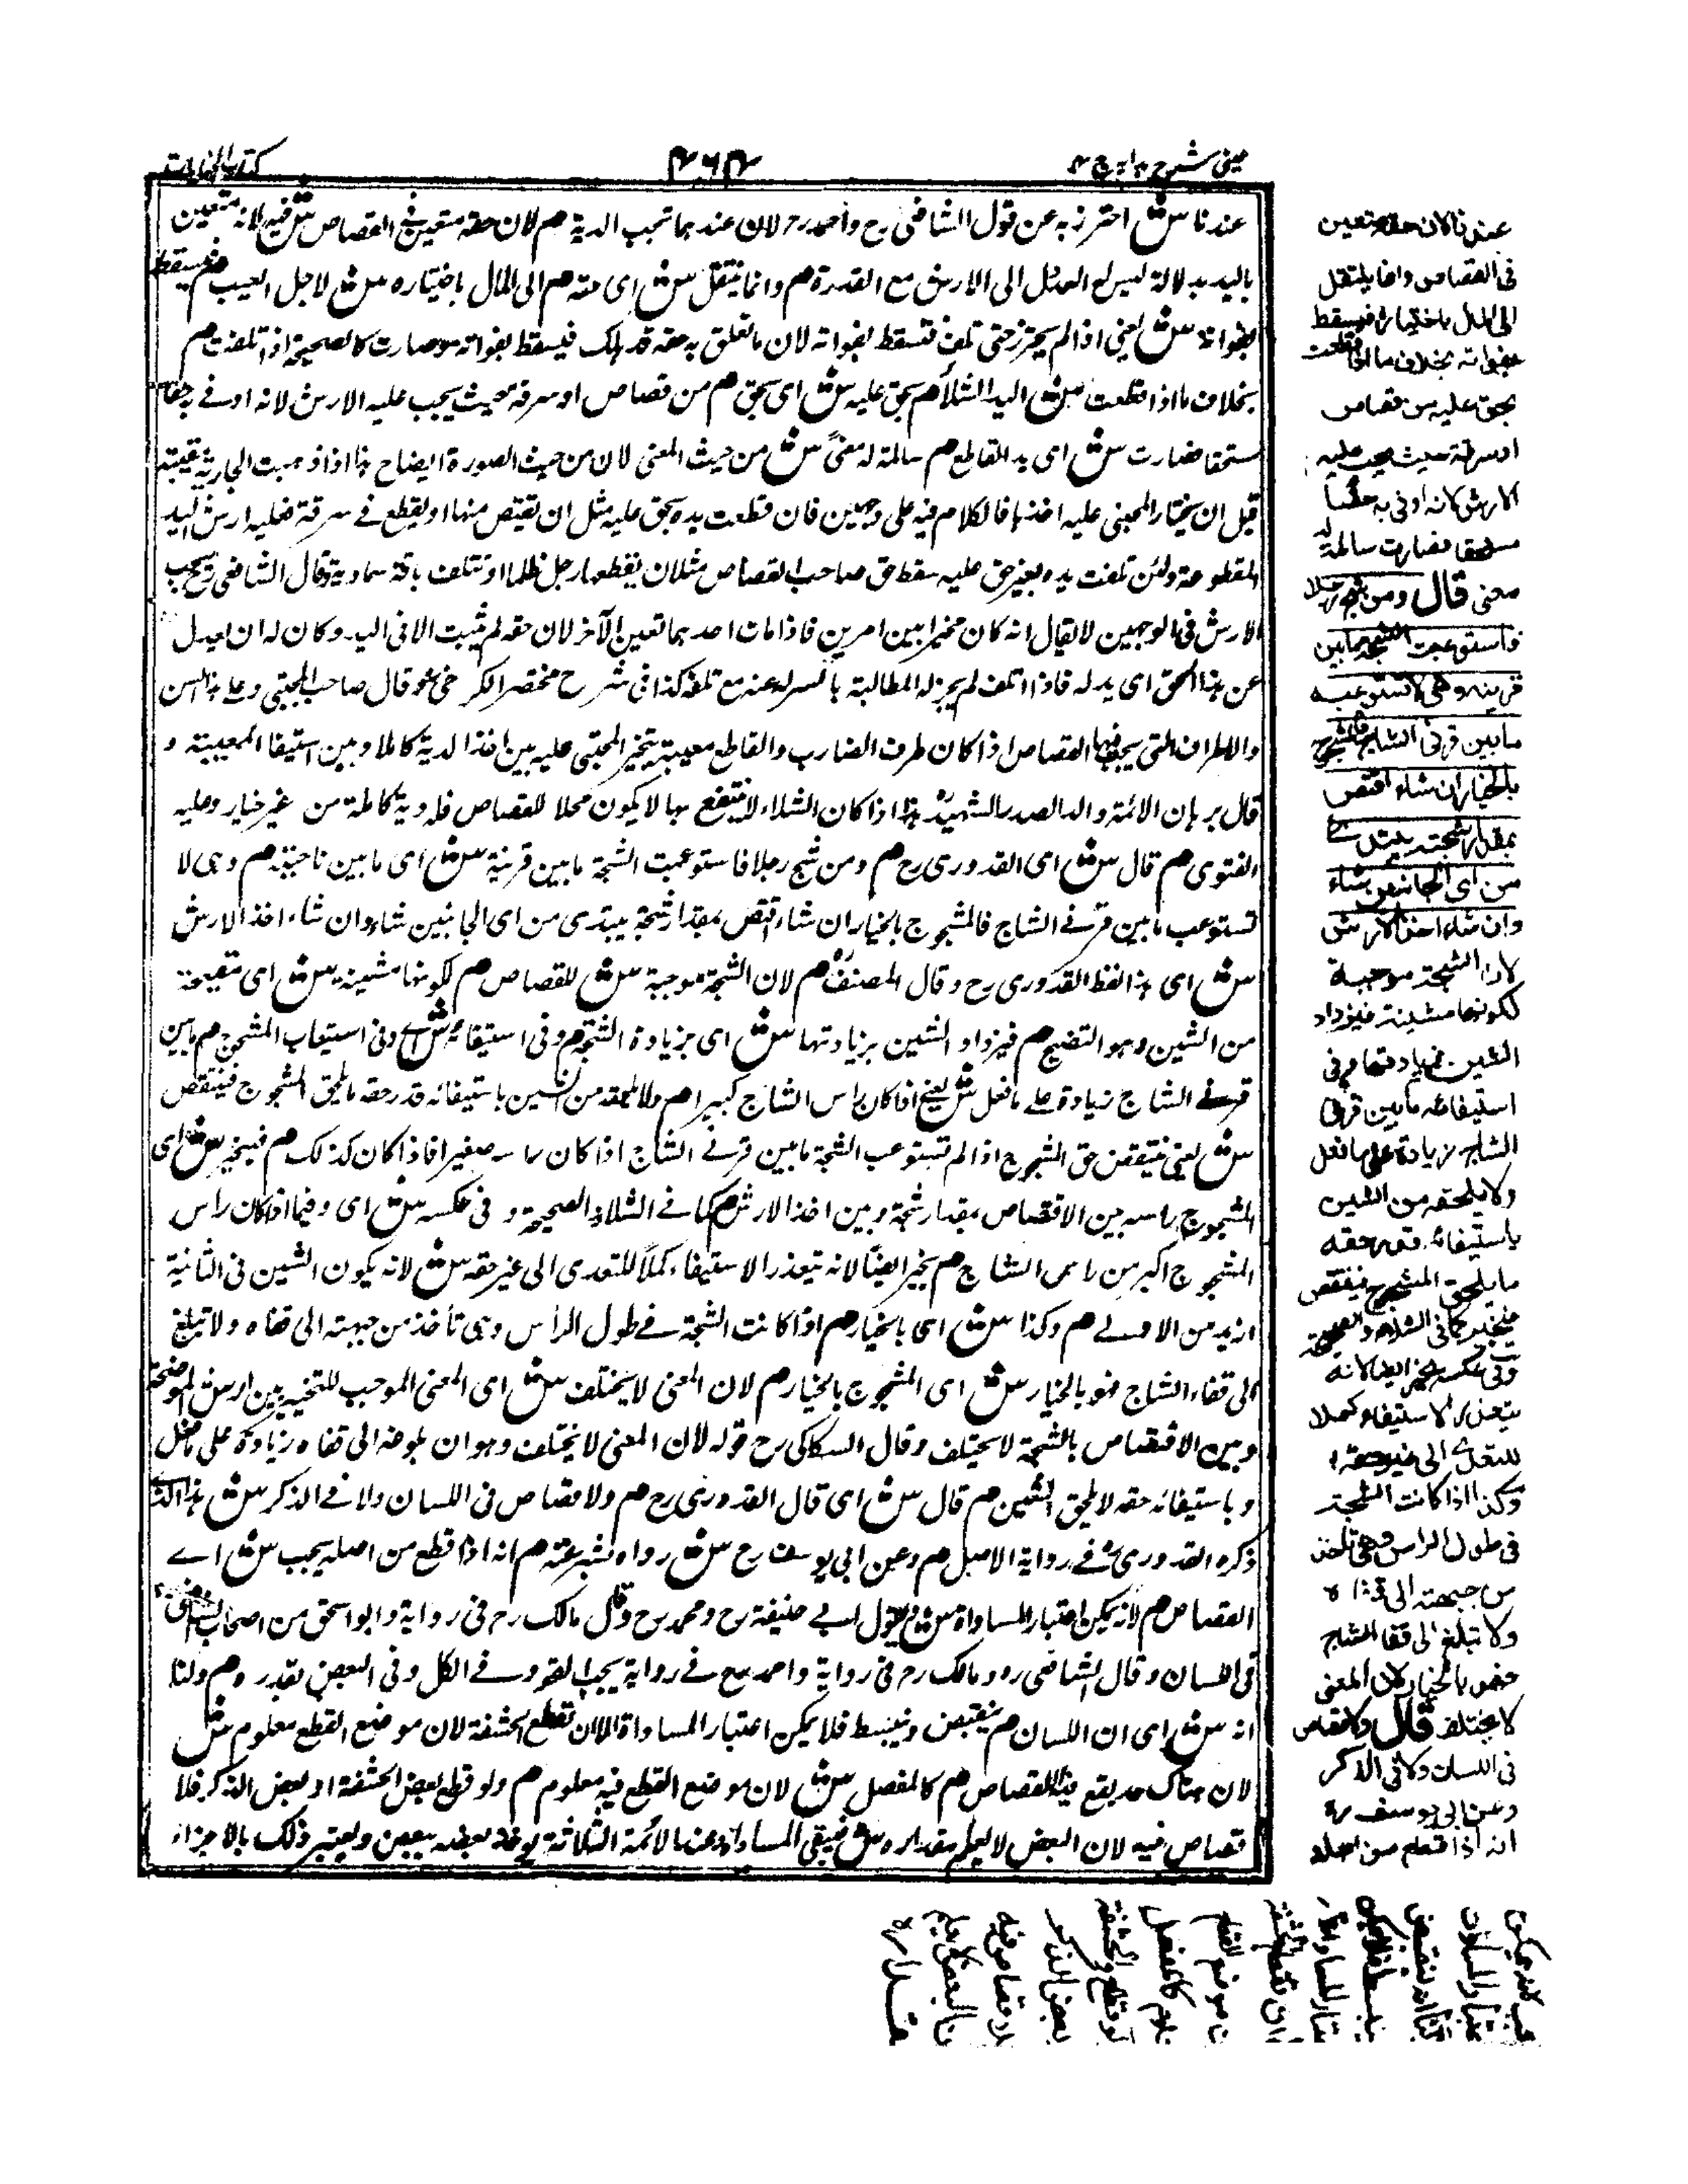 عینی شرح ہدایہ ج ۴
۴۶۴
کتاب الجنایات
عندنا ش احترز به عن قول الشافعی رح واحمد رح لان عندهما تجب الدیة م لان حقه متعین فی القصاص ش فیه لانه متعین
بالید بدلالة لیس له العدل الی الارش مع القدرة م وانما ینتقل ش ای حقه م الی المال باختیاره ش لاجل العیب م فیسقط
بفواته ش یعنی اذا لم یختر حتی تلف فتسقط بفواته لان ما تعلق به حقه قد هلک فیسقط بفواته وصارت کالصحیحة اذا تلفت م
بخلاف ما اذا قطعت ش الید الشلاء م بحق علیه ش ای بحق م من قصاص او سرقة حیث یجب علیه الارش لانه اوفی به حقا
مستحقا فصارت ش ای ید القاطع م سالمة له معنی ش من حیث المعنی لان من حیث الصورة ایضاح هذا اذا ذهبت الجارية بقیمته
قبل ان یختار المجنی علیه اخذها فالکلام فیه علی وجهین فان قطعت یده بحق علیه مثل ان تقتص منها او یقطع فی سرقة فعلیه ارش الید
المقطوعة ولئن تلفت یده بغیر حق علیه سقط حق صاحب القصاص مثلا ان یقطعها رجل ظلما او تتلف بآفة سماویة وقال الشافعی رح یجب
الارش فی الوجهین لا یقال انه کان مخیرا بین امرین فاذا مات احدهما تعین الآخر لان حقه لم یثبت الا فی الید وکان له ان یعدل
عن هذا الحق ای بدله فاذا تلف لم یجز له المطالبة عنه مع تلفه کذا فی شرح مختصر الکرخی وقال صاحب المجتبی وعلی هذا السن
والاطراف التی یجب فیها القصاص اذا کان طرف الضارب والقاطع معیبة یتخیر المجنی علیه بین اخذ الدیة کاملا وبین استیفاء المعیبة و
قال برهان الائمة والد الصدر الشهید هذا اذا کان الشلاء لا ینتفع بها لا یکون محلا للقصاص فله دیة کاملة من غیر خیار وعلیه
الفتوی م قال ش ای القدوری رح م ومن شج رجلا فاستوعبت الشجة ما بین قرنیه ش ای ما بین ناحیتیه م وهی لا
تستوعب ما بین قرنی الشاج فالمشجوج بالخیار ان شاء اقتص بمقدار شجته یبتدی من ای الجانبین شاء وان شاء اخذ الارش
ش ای هذا لفظ القدوری رح وقال المصنف م لان الشجة موجبة ش للقصاص م لکونها مشینة ش ای متقبحة
من الشین وهو التقبیح م فیزداد الشین بزیادتها ش ای بزیادة الشجة م وفی استیفائه ش ای وفی استیعاب المشجوج م ما بین
قرنی الشاج زیادة علی ما فعل ش یعنی اذا کان راس الشاج کبیرا م ولا یلحقه من الشین باستیفائه قدر حقه ما یلحق المشجوج فینتقص
ش یعنی فینتقص حق المشجوج اذا لم تستوعب الشجة ما بین قرنی الشاج اذا کان راسه صغیرا فاذا کان کذلک م فیخیر ش ای
المشجوج راسه بین الاقتصاص بمقدار شجته وبین اخذ الارش م کما فی الشلاء والصحیحة وفی عکسه ش ای وفیما اذا کان راس
المشجوج اکبر من راس الشاج م یخیر ایضا لانه یتعذر الاستیفاء کملا للتعدی الی غیر حقه ش لانه یکون الشین فی الثانیة
ازید من الاولی م وکذا ش ای بالخیار م اذا کانت الشجة فی طول الراس وهی تأخذ من جبهته الی قفاه ولا تبلغ
الی قفاء الشاج فهو بالخیار ش ای المشجوج بالخیار م لان المعنی لا یختلف ش ای المعنی الموجب للتخییر بین ارش الموضحة
وبین الاقتصاص بالشجة لا یختلف وقال السکاکی رح قوله لان المعنی لا یختلف وهو ان بلوغه الی قفاه زیادة علی ما فعل
وباستیفائه حقه لا یلحق الشین م قال ش ای قال القدوری رح م ولا قصاص فی اللسان ولا فی الذکر ش هذا الذی
ذکره القدوری فی روایة الاصل م وعن ابی یوسف رح ش رواه بشر عنه م انه اذا قطع من اصله یجب ش ای
القصاص م لانه یمکن اعتبار المساواة ش قول ابی حنیفة رح ومحمد رح وقال مالک رح فی روایة وابو اسحق من اصحاب الشافعی
فی اللسان وقال الشافعی رح ومالک رح فی روایة واحمد رح فی روایة یجب القود فی الکل وفی البعض بقدره م ولنا
انه ش ای ان اللسان م ینقبض وینبسط فلا یمکن اعتبار المساواة الا ان تقطع الحشفة لان موضع القطع معلوم ش
لان هناک حد یقع فیه القصاص م کالمفصل ش لان موضع القطع فیه معلوم م ولو قطع بعض الحشفة او بعض الذکر فلا
قصاص فیه لان البعض لا یعلم مقداره ش فینتفی المساواة وعند الائمة الثلاثة یوخذ بعضه ببعض ویعتبر ذلک بالاجزاء
عندنا لان حقه متعین
فی القصاص وانما ینتقل
الی المال باختیاره فیسقط
بفواته بخلاف ما اذا قطعت
بحق علیه من قصاص
او سرقة حیث یجب علیه
الارش لانه اوفی به حقا
مستحقا فصارت سالمة له
معنی قال ومن شج رجلا
فاستوعبت الشجة ما بین
قرنیه وهی لا تستوعب
ما بین قرنی الشاج فالمشجوج
بالخیار ان شاء اقتص
بمقدار شجته یبتدی
من ای الجانبین شاء
وان شاء اخذ الارش
لان الشجة موجبة
لکونها مشینة فیزداد
الشین بزیادتها وفی
استیفائه ما بین قرنی
الشاج زیادة علی ما فعل
ولا یلحقه من الشین
باستیفائه قدر حقه
ما یلحق المشجوج فینتقص
فیخیر کما فی الشلاء والصحیحة
وفی عکسه یخیر ایضا لانه
یتعذر الاستیفاء کملا
للتعدی الی غیر حقه
وکذا اذا کانت الشجة
فی طول الراس وهی تاخذ
من جبهته الی قفاه
ولا تبلغ الی قفا الشاج
فهو بالخیار لان المعنی
لا یختلف قال ولا قصاص
فی اللسان ولا فی الذکر
وعن ابی یوسف رح
انه اذا قطع من اصله
یجب لانه یمکن
اعتبار المساواة
ولنا انه ینقبض
وینبسط فلا یمکن
اعتبار المساواة
الا ان تقطع الحشفة
لان موضع القطع
معلوم کالمفصل
ولو قطع بعض الحشفة
او بعض الذکر
فلا قصاص فیه
لان البعض لا یعلم
مقداره